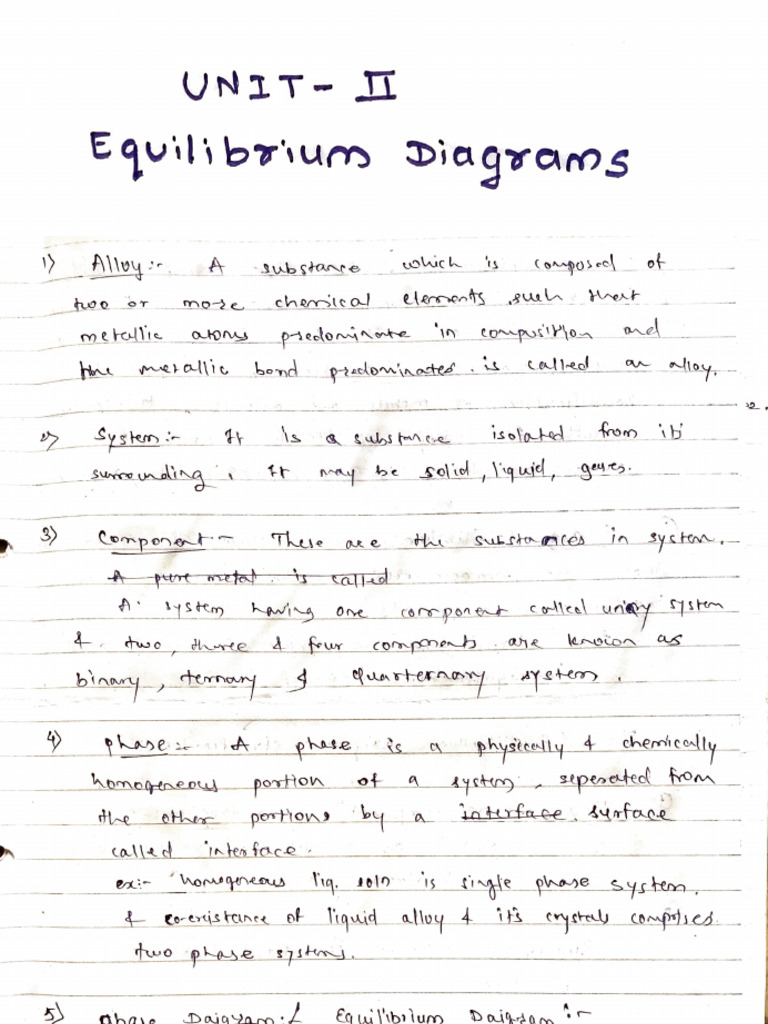 UNIT - II
Equilibrium Diagrams
1) Alloy:- A substance which is composed of
two or more chemical elements such that
metallic atoms predominate in composition and
the metallic bond predominates. is called an alloy.
2.
2) System:- It is a substance isolated from its
surrounding. It may be solid, liquid, gases.
3) Component:- These are the substances in system.
A pure metal is called
A system having one component called unary system
& two, three & four components are known as
binary, ternary & quarternary system.
4) phase:- A phase is a physically & chemically
homogeneous portion of a system, seperated from
the other portions by a interface. surface
called interface.
ex:- homogeneous liq. soln is single phase system.
& co-existance of liquid alloy & it's crystals comprises
two phase systems.
5) phase Daigram:/ Equilibrium Daigram:-